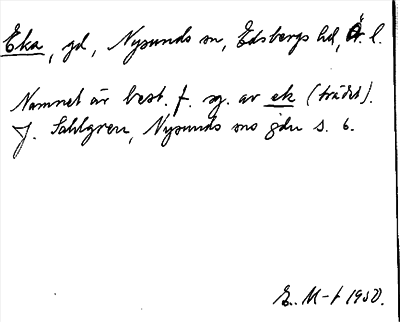 Eka, gd, Nysunds sn, Edsbergs hd, Ö. l.
Namnet är best. f. sg. av ek (trädet).
J. Sahlgren, Nysunds sns gdn s. 6.
E. M-t 1950.